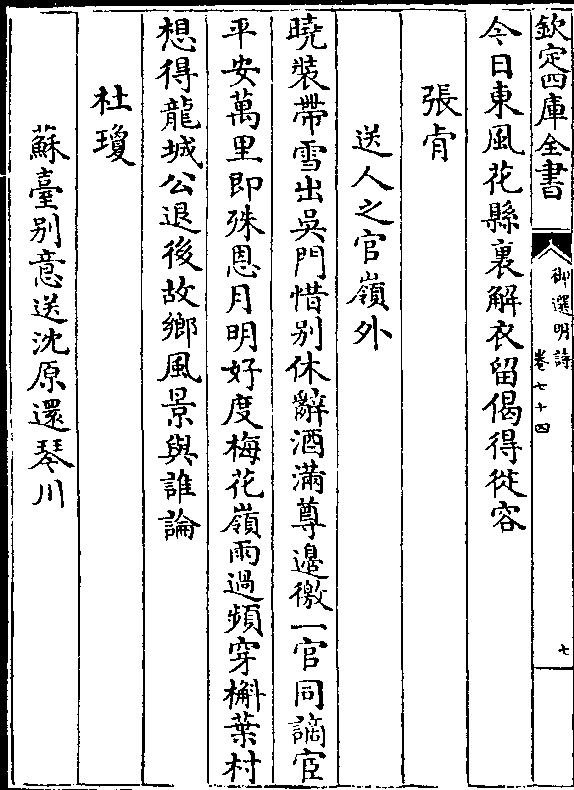 欽定四庫全書
御選明詩
卷七十四
七
今日東風花縣裏解衣留偈得從容
張肯
送人之官嶺外
曉裝帶雪出吳門惜别休辭酒滿尊邉徼一官同謫宦
平安萬里即殊恩月明好度梅花嶺雨過頻穿槲葉村
想得龍城公退後故鄉風景與誰論
杜瓊
蘇臺别意送沈原還琴川